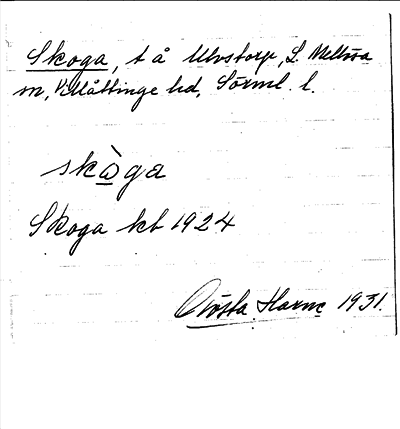 Skoga, t å Ulvstorp, L. Mellösa
sn, Villåttinge hd, Sörml. l.
skò̲ga
Skoga kb 1924
Gösta Harne 1931.